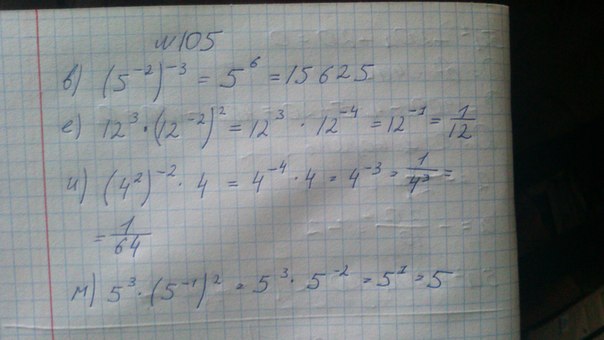 №105
в) (5⁻²)⁻³ = 5⁶ = 15625
е) 12³ · (12⁻²)² = 12³ · 12⁻⁴ = 12⁻¹ = 1/12
и) (4²)⁻² · 4 = 4⁻⁴ · 4 = 4⁻³ = 1/4³ =
= 1/64
м) 5³ · (5⁻¹)² = 5³ · 5⁻² = 5¹ = 5